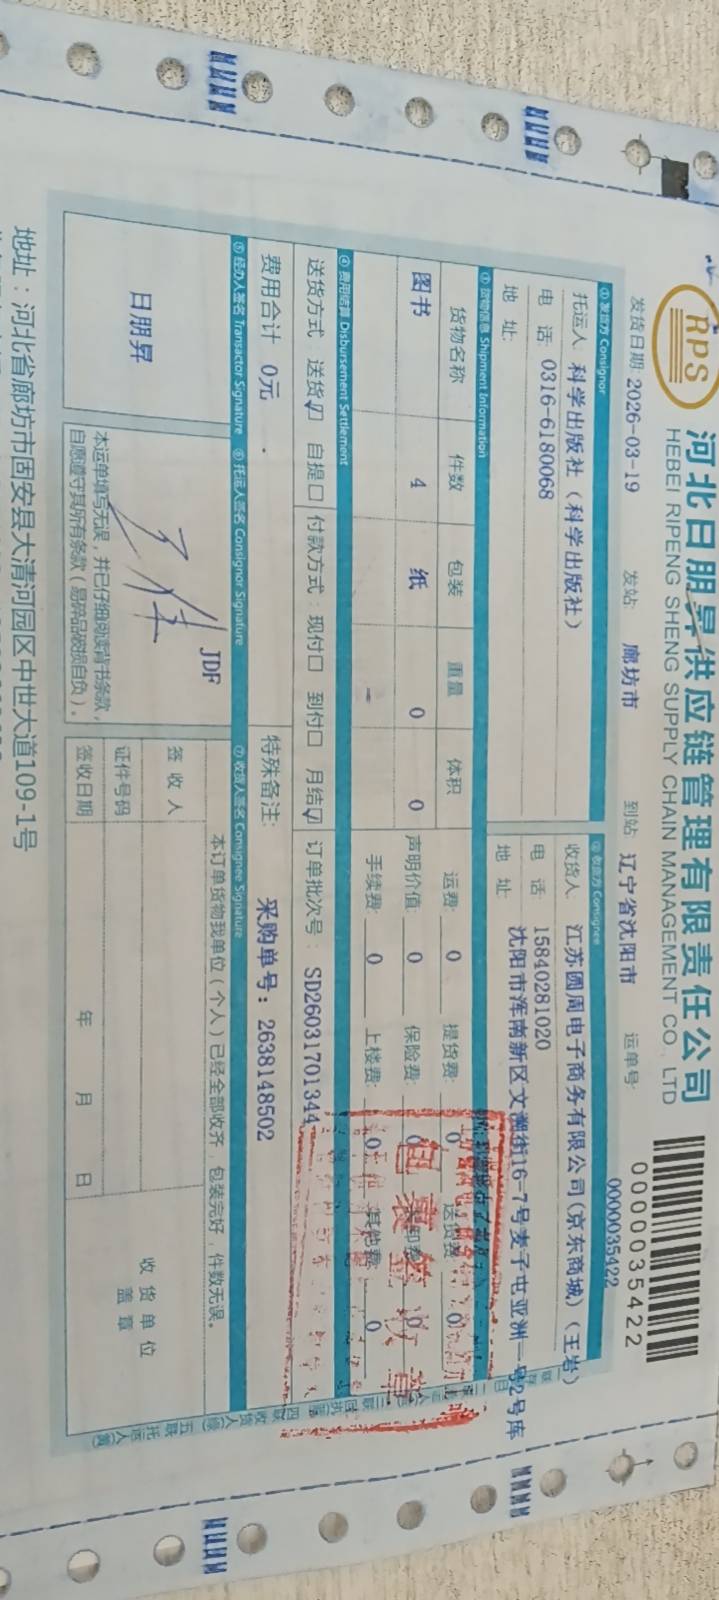 RPS
河北日朋昇供应链管理有限责任公司
HEBEI RIPENG SHENG SUPPLY CHAIN MANAGEMENT CO., LTD
0000035422
0000035422
发货日期: 2026-03-19 发站: 廊坊市 到站: 辽宁省沈阳市 运单号:
① 发货方 Consignor
② 收货方 Consignee
托运人: 科学出版社（科学出版社）
收货人: 江苏圆周电子商务有限公司(京东商城)(王岩)
电 话: 0316-6180068
电 话: 15840281020
地 址:
地 址: 沈阳市浑南新区文溯街16-7号麦子屯亚洲一号2号库
③ 货物信息 Shipment Information
货物名称 件数 包装 重量 体积
图书 4 纸 0 0
运费: 0 提货费: 0 送货费: 0
声明价值: 0 保险费: 0 0
手续费: 0 上楼费: 0 其他费: 0
④ 费用结算 Disbursement Settlement
送货方式: 送货☑ 自提□ 付款方式: 现付□ 到付□ 月结☑ 订单批次号: SD26031701344
费用合计: 0元
特殊备注: 采购单号: 2638148502
⑤ 经办人签名 Transactor Signature
⑥ 托运人签名 Consignor Signature
⑦ 收货人签名 Consignee Signature
日朋昇
JDF
本运单填写无误，并已仔细阅读背书条款，
自愿遵守其所有条款（易碎品破损自负）。
本订单货物我单位（个人）已经全部收齐，包装完好，件数无误。
签 收 人
证件号码
签收日期 年 月 日
收 货 单 位
盖 章
地址：河北省廊坊市固安县大清河园区中世大道109-1号